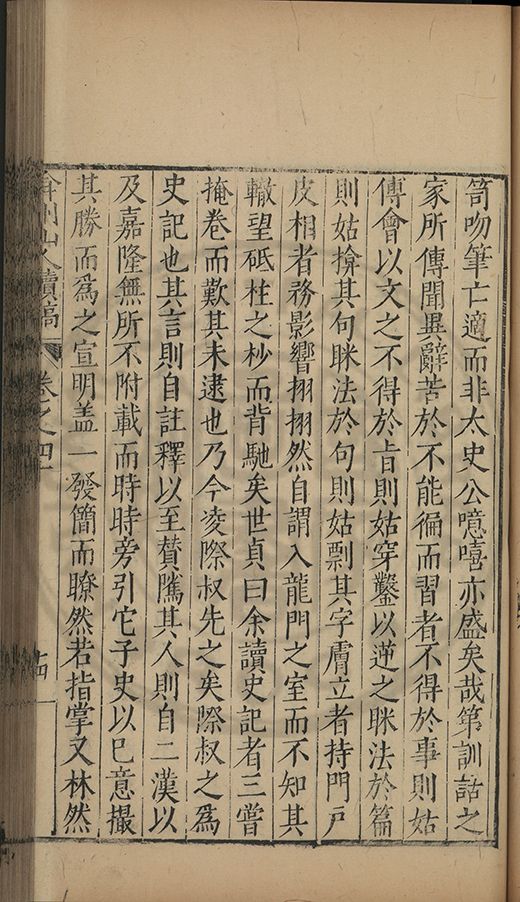 笥吻筆亡適而非太史公噫嘻亦盛矣哉第訓詁之
家所傳聞異辭苦於不能徧而習者不得於事則姑
傅會以文之不得於旨則姑穿鑿以逆之眯法於篇
則姑揜其句眯法於句則姑剽其字膚立者持門戸
皮相者務影響栩栩然自謂入龍門之室而不知其
轍望砥柱之杪而背馳矣世貞曰余讀史記者三嘗
掩卷而歎其未逮也乃今凌際叔先之矣際叔之爲
史記也其言則自註釋以至賛隲其人則自二漢以
及嘉隆無所不附載而時時旁引它子史以已意撮
其勝而爲之宣明盖一發簡而瞭然若指掌又林然
弇州山人續稿 卷之四